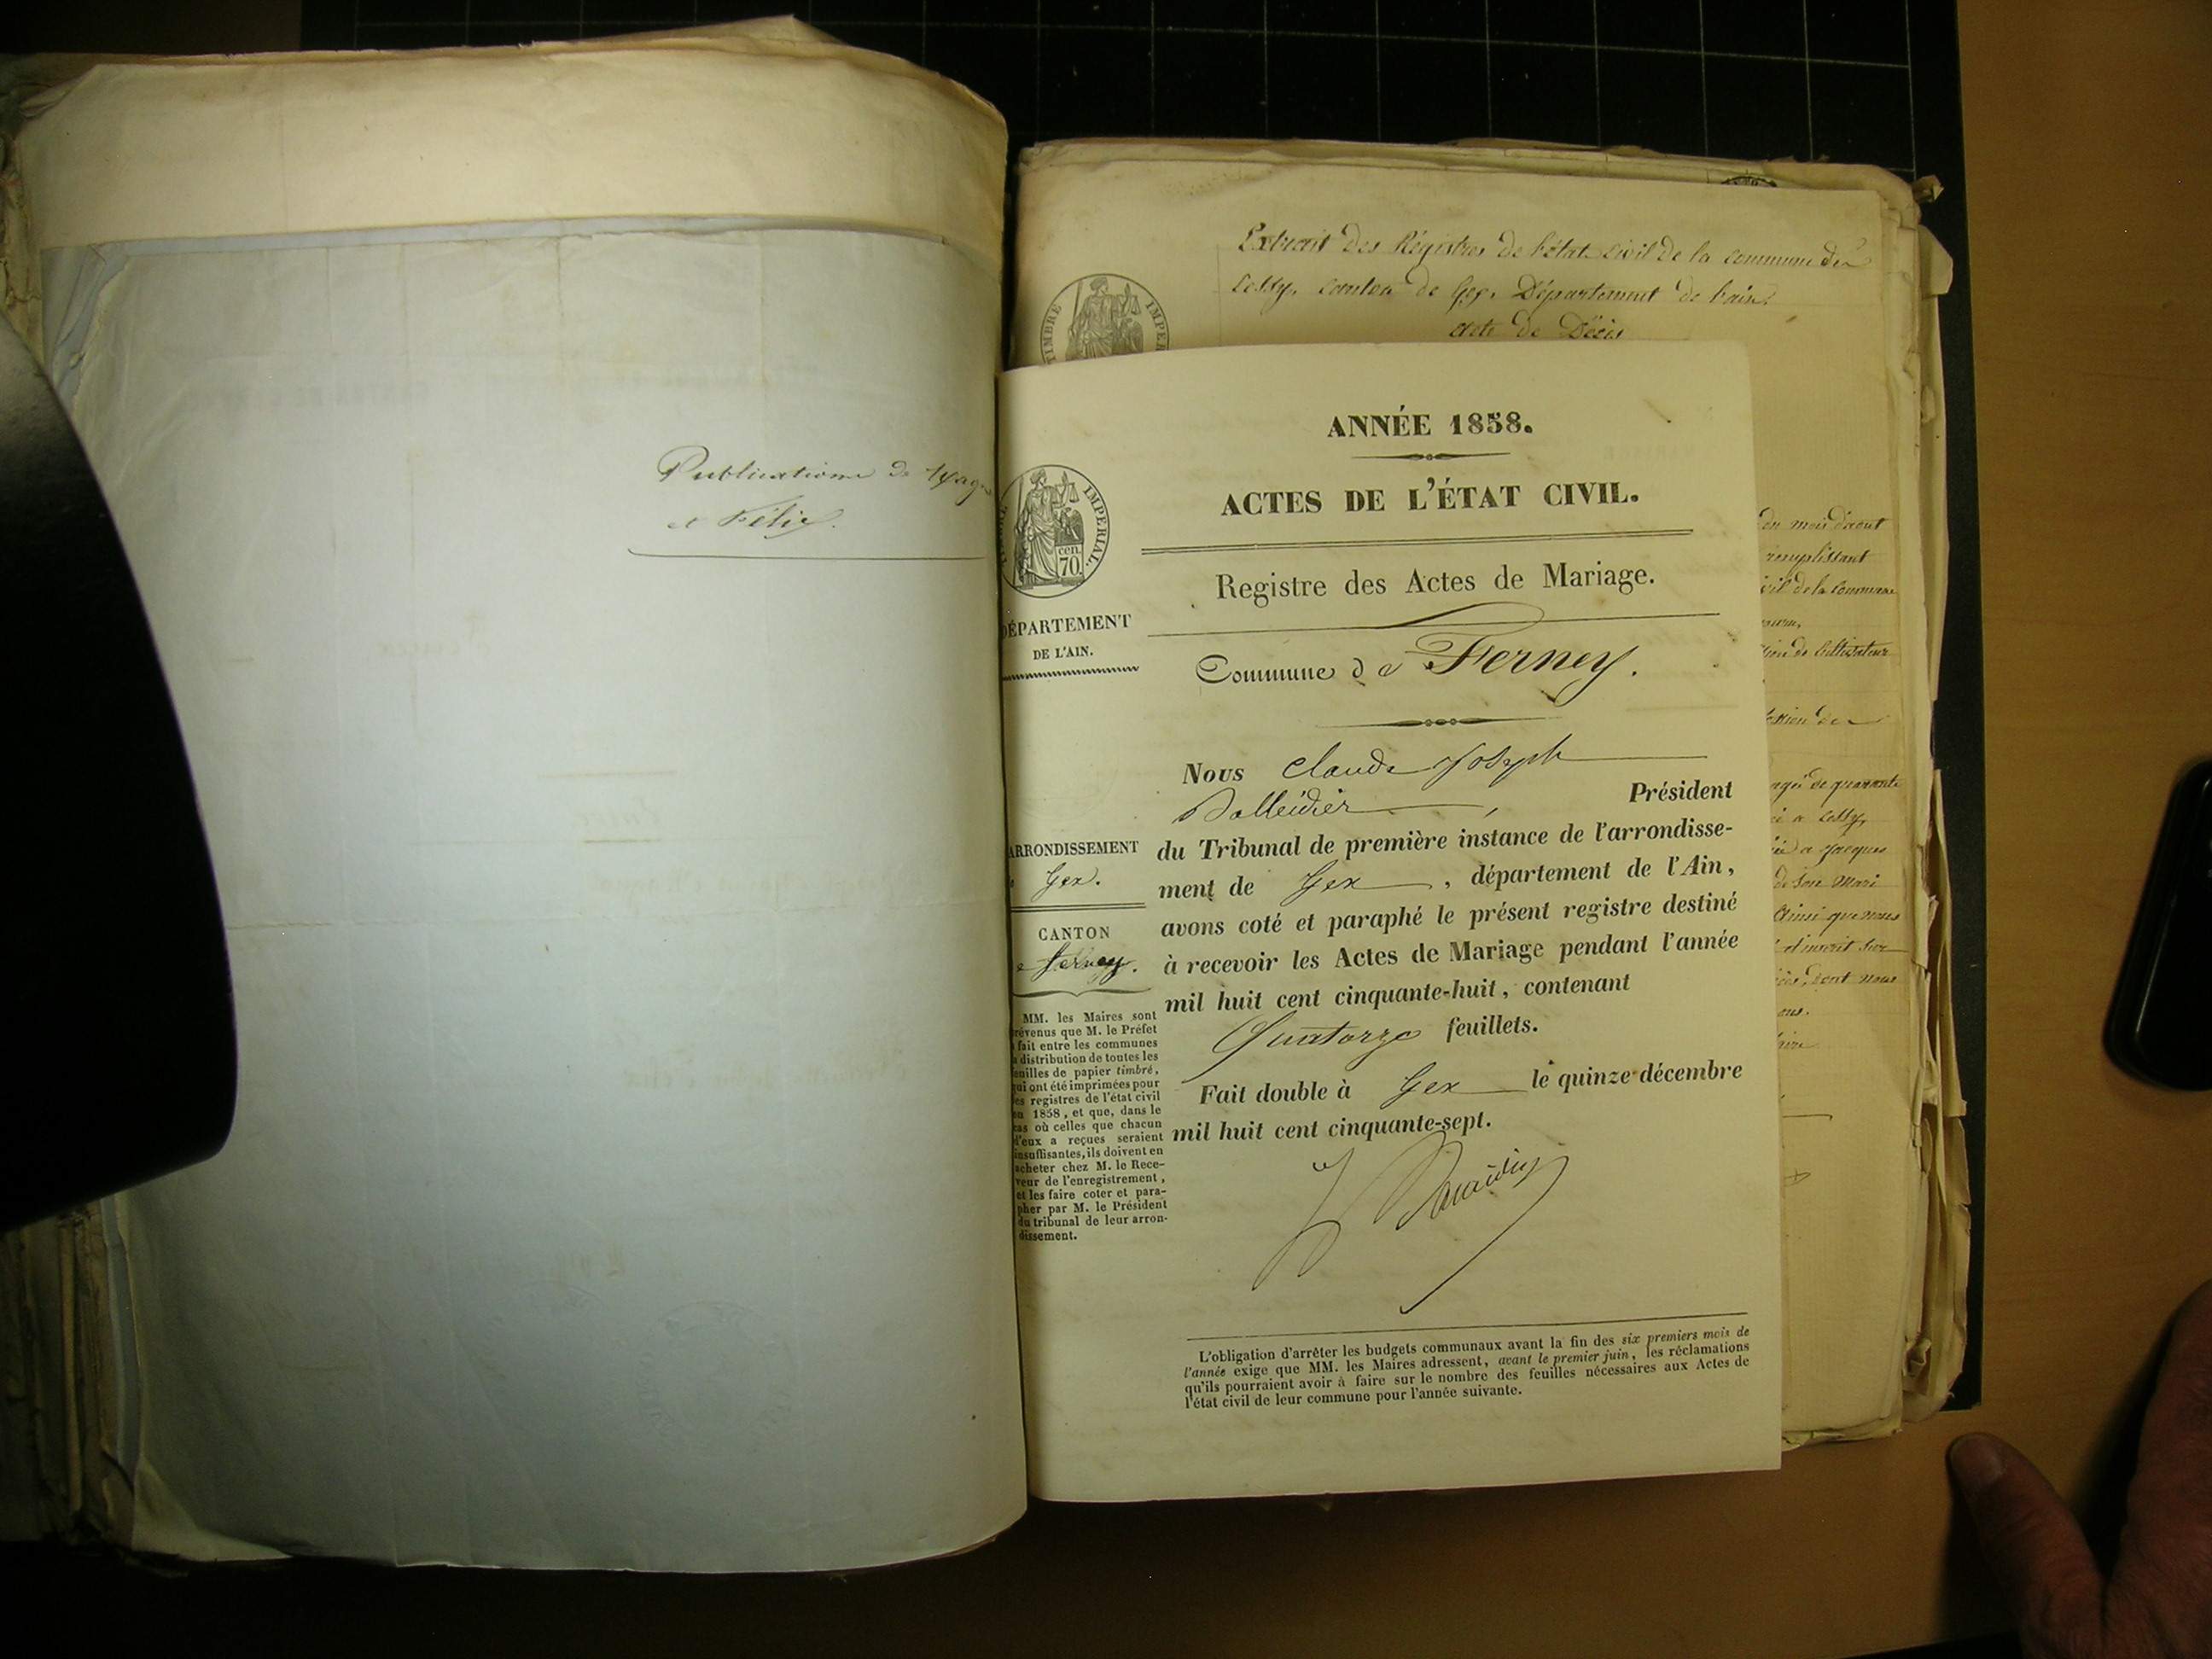 Publications de
et Félix.
Extrait des Régistres de l'état civil de la commune de
Cessy, canton de Gex, Département de l'ain.
acte de Décès
TIMBRE IMPER
ANNÉE 1858.
ACTES DE L'ÉTAT CIVIL.
IMPÉRIAL.
cen.
70.
Registre des Actes de Mariage.
DÉPARTEMENT
DE L'AIN.
Commune de Ferney.
Nous Claude Joseph
Président
du Tribunal de première instance de l'arrondisse-
ment de Gex, département de l'Ain,
avons coté et paraphé le présent registre destiné
à recevoir les Actes de Mariage pendant l'année
mil huit cent cinquante-huit, contenant
Quatorze feuillets.
Fait double à Gex le quinze décembre
mil huit cent cinquante-sept.
ARRONDISSEMENT
Gex.
CANTON
Ferney.
MM. les Maires sont
prévenus que M. le Préfet
fait entre les communes
distribution de toutes les
feuilles de papier timbré,
qui ont été imprimées pour
es registres de l'état civil
1858, et que, dans le
cas où celles que chacun
d'eux a reçues seraient
insuffisantes, ils doivent en
acheter chez M. le Rece-
veur de l'enregistrement,
et les faire coter et para-
pher par M. le Président
du tribunal de leur arron-
dissement.
L'obligation d'arrêter les budgets communaux avant la fin des six premiers mois de
l'année exige que MM. les Maires adressent, avant le premier juin, les réclamations
qu'ils pourraient avoir à faire sur le nombre des feuilles nécessaires aux Actes de
l'état civil de leur commune pour l'année suivante.
du mois d'aout
remplissant
de la commune
de
agé de quarante
a Cessy,
a Jacques
de son Mari
Ainsi que nous
inscrit sur
dont nous